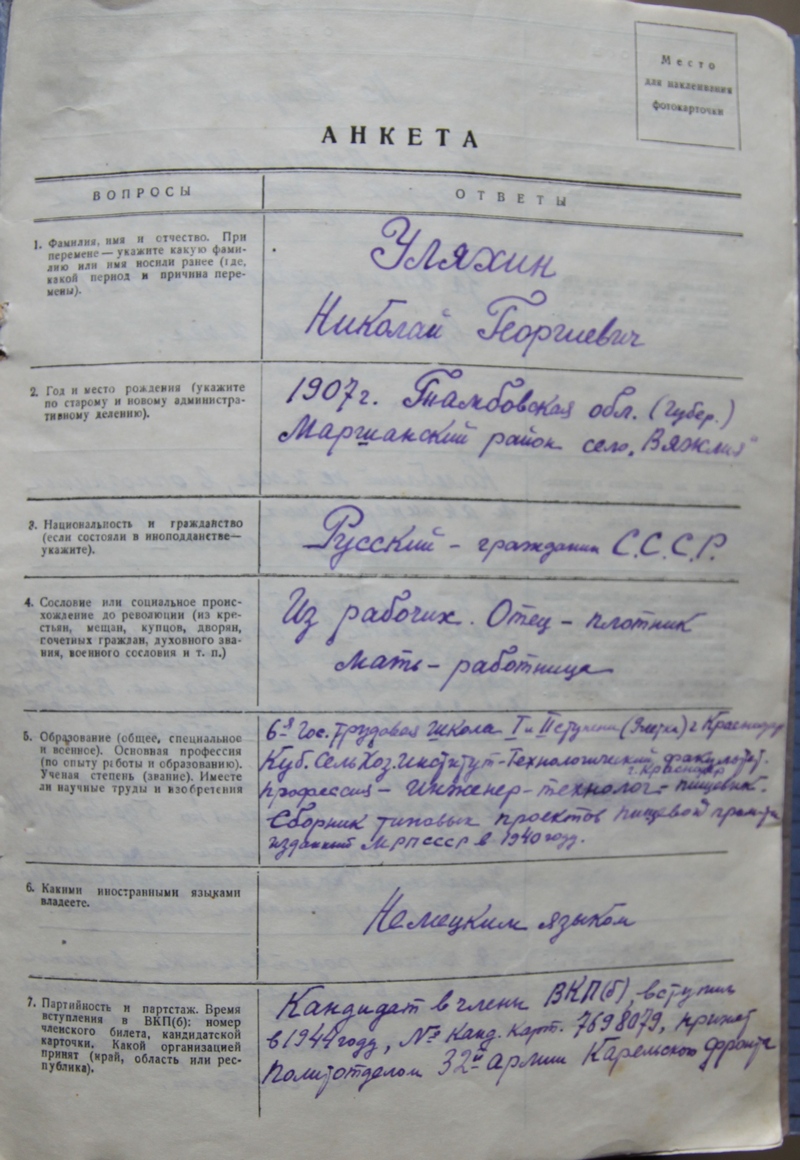 Место
для наклеивания
фотокарточки
АНКЕТА
ВОПРОСЫ
ОТВЕТЫ
1. Фамилия, имя и отчество. При
перемене — укажите какую фами-
лию или имя носили ранее (где,
какой период и причина пере-
мены).
Уляхин
Николай Георгиевич
2. Год и место рождения (укажите
по старому и новому администра-
тивному делению).
1907 г. Тамбовская обл. (Губер.)
Маршанский район село „Вяжля"
3. Национальность и гражданство
(если состояли в иноподданстве—
укажите).
Русский - гражданин С.С.С.Р.
4. Сословие или социальное проис-
хождение до революции (из кре-
стьян, мещан, купцов, дворян,
почетных граждан, духовного зва-
ния, военного сословия и т. п.)
Из рабочих. Отец - плотник
Мать - работница
5. Образование (общее, специальное
и военное). Основная профессия
(по опыту работы и образованию).
Ученая степень (звание). Имеете
ли научные труды и изобретения
6-я Гос. Трудовая школа I и II ступени (9 летка) г Краснодар
Куб. СельХоз. Институт - Технологический факультет.
г. Краснодар
Профессия - Инженер-технолог - пищевик.
Сборник типовых проектов пищевой пром-ти
изданный МРПСССР в 1940 году.
6. Какими иностранными языками
владеете.
Немецким языком
7. Партийность и партстаж. Время
вступления в ВКП(б): номер
членского билета, кандидатской
карточки. Какой организацией
принят (край, область или рес-
публика).
Кандидат в члены ВКП(б), вступил
в 1944 году, № Канд. карт. 7698079, принят
политотделом 32й армии Карельского фронта